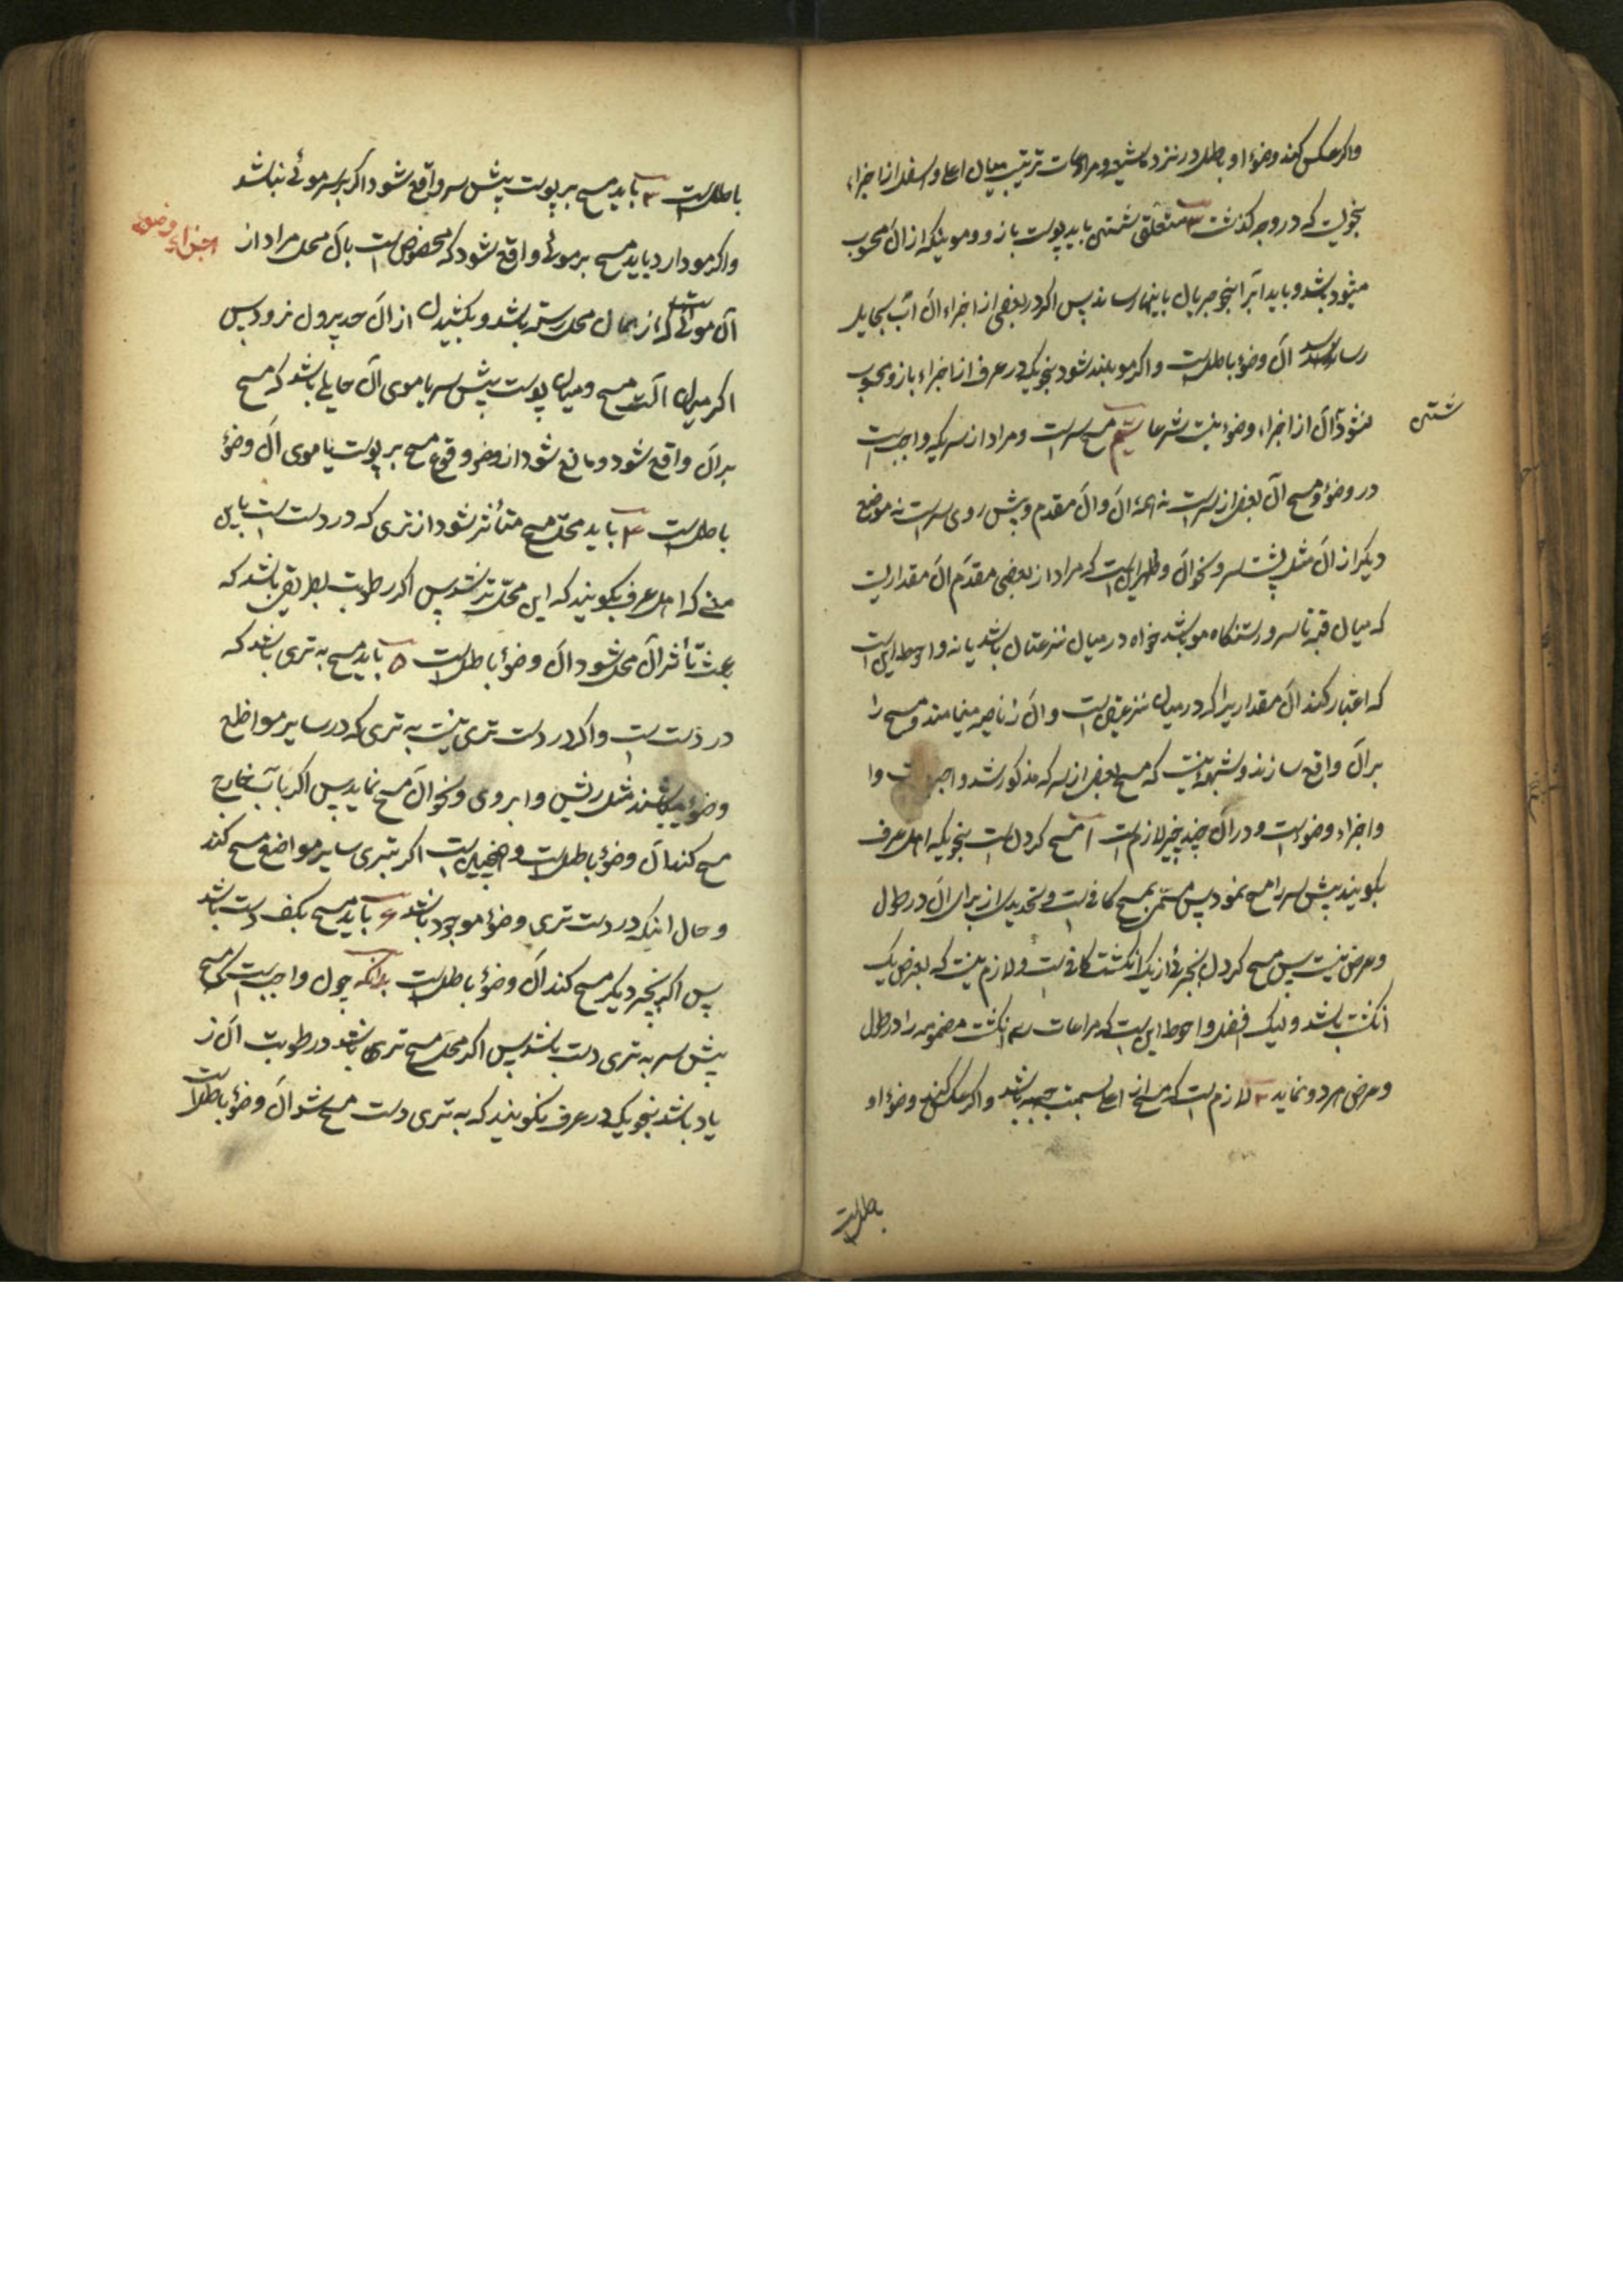 واکر عکس کند وضوء او باطل و در نزد شستن و مراعات ترتیب میان اعلی و اسفل از اجزاء
بنحویست که در وجه گذشت ۳ متعلق شستن باید پوست بازو و موئیکه از آن محسوب
میشود باشد و باید آبرا بنحو جریان باینها رساند پس اگر در بعضی از اجزاء آن آب بحایل
رساند آن وضوء باطلست و اگر مو بلند شود بنحویکه در عرف از اجزاء بازو محسوب
نشود آن از اجزاء وضوء نیست شرعا ششم مسح سر است و مراد از سریکه واجبست
شستن
در وضوء مسح آن بعض از سر است نه همه آن و آن مقدم و پیش روی سر است نه موضع
دیگر از آن مثل پشت سر و نحو آن و ظاهر اینست که مراد از بعضی مقدم آن مقداریست
که میان قبه تا سر و رستنگاه مو باشد خواه در میان نزعتان باشد یا نه و احوط اینست
که اعتبار کند آن مقداریرا که در میان نزعتین است و آن را ناصیه مینامند و مسح را
بر آن واقع سازند و شبهه نیست که مسح بعض از سر که مذکور شد واجبست و از
واجزاء وضوء است و در آن چند چیز لازمست ۱ مسح کردن است بنحویکه اهل عرف
بگویند پیش سر را مسح نمود پس مسمی مسح کافیست و تحدیدی از برای آن در طول
و عرض نیست پس مسح کردن بجزئی از یک انگشت کافیست و لازم نیست که بعرض یک
انگشت باشد ولیک افضل و احوط این است که مراعات سه انگشت مضمومه را در طول
و عرض هر دو نماید ۲ لازم است که مسح از اعلی بسمت جبهه باشد و اگر عکس کند وضوء او
باطلست
باطلست ۳ باید مسح بر پوست پیش سر واقع شود اگر بر سر موئی نباشد
اجزاء وضوء
و اگر مو دارد باید مسح بر موئی واقع شود که مخصوص است بآن محل مراد از
آن موئی است که از همان محل رسته باشد و بکشیدن از آن حد بیرون نرود پس
اگر میان آلت مسح و میان پوست پیش سر یا موی آن حایلی باشد که مسح
بر آن واقع شود و مانع شود از وقوع مسح بر پوست یا موی آن وضوء
باطلست ۴ باید محل مسح متأثر شود از تری که در دست است باین
معنی که اهل عرف بگویند که این محل تر شد پس اگر رطوبت بطریقی باشد که
بعث تأثر آن محل نشود آن وضوء باطلست ۵ باید مسح به تری باشد که
در دست است و اگر در دست تری نیست به تری که در سایر مواضع
وضوء میباشد مثل ریش و ابروی و نحو آن مسح نماید پس اگر بآب خارج
مسح کند آن وضوء باطلست و همچنین است اگر بتری سایر مواضع مسح کند
و حال اینکه در دست تری وضوء موجود باشد ۶ باید مسح بکف دست باشد
پس اگر بچیز دیگر مسح کند آن وضوء باطلست بدانکه چون واجب است که مسح
پیش سر به تری دست باشد پس اگر محل مسح تر باشد و رطوبت آن ز
یاد باشد بنحویکه در عرف نگویند که به تری دست مسح شد آن وضوء باطلست